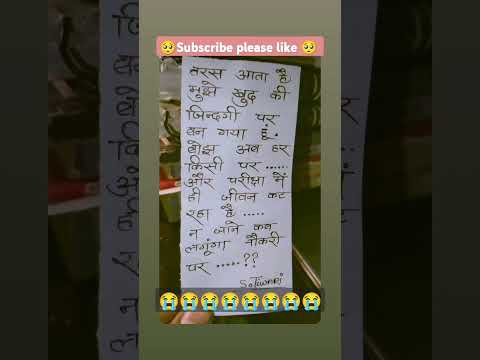 🥺Subscribe please like 🥺
तरस आता है
मुझे खुद की
जिन्दगी पर
बन गया हूं.
बोझ अब हर
किसी पर .....
और परीक्षा में
ही जीवन कट
रहा है .....
न जाने कब
लगूंगा नौकरी
पर .....??
S. Tiwari
😭😭😭😭😭😭😭😭